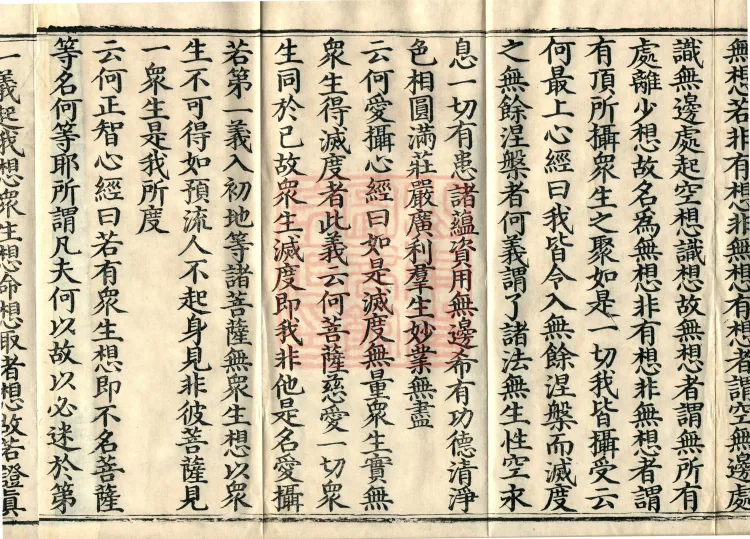 無想若非有想非無想有想者謂空無邊處
識無邊處起空想識想故無想者謂無所有
處離少想故名為無想非有想非無想者謂
有頂所攝衆生之聚如是一切我皆攝受云
何最上心經曰我皆令入無餘涅槃而滅度
之無餘涅槃者何義謂了諸法無生性空永
息一切有患諸蘊資用無邊希有功德清淨
色相圓滿莊嚴廣利羣生妙業無盡
云何愛攝心經曰如是滅度無量衆生實無
衆生得滅度者此義云何菩薩慈愛一切衆
生同於已故衆生滅度即我非他是名愛攝
若第一義入初地等諸菩薩無衆生想以衆
生不可得如預流人不起身見非彼菩薩見
一衆生是我所度
云何正智心經曰若有衆生想即不名菩薩
等名何等耶所謂凡夫何以故以必迷於第
一義起我想衆生想命想取者想故若證眞